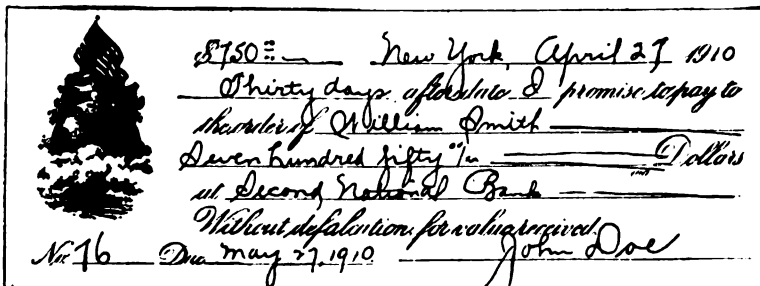 $750 New York, April 27 1910
Thirty days after date I promise to pay to
the order of William Smith
Seven hundred fifty Dollars
at Second National Bank
Without defalcation for value received.
No. 76 Due May 27, 1910 John Doe